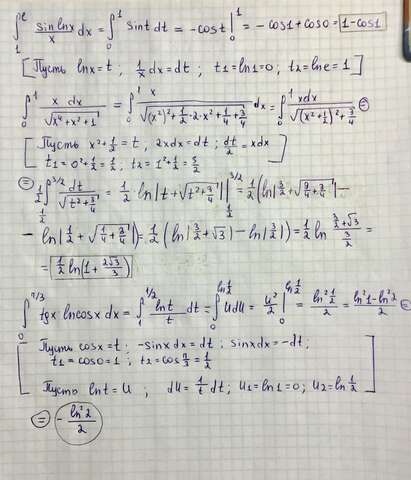 ∫₁ᵉ sinlnx/x dx = ∫₀¹ sint dt = -cost |₀¹ = -cos1+cos0 = 1-cos1
[Пусть lnx=t ; 1/x dx=dt ; t₁=ln1=0 ; t₂=lne=1]
∫₀¹ x dx/√(x⁴+x²+1) = ∫₀¹ x/√((x²)²+1/2·2·x²+1/4+3/4) dx = ∫₀¹ xdx/√((x²+1/2)²+3/4) ⊜
[Пусть x²+1/2=t , 2xdx=dt ; dt/2=xdx
t₁=0²+1/2=1/2, t₂=1²+1/2=3/2]
⊜ 1/2 ∫_{1/2}^{3/2} dt/√(t²+3/4) = 1/2 ln|t+√(t²+3/4)| |_{1/2}^{3/2} = 1/2(ln|3/2+√(9/4+3/4)| -
- ln|1/2+√(1/4+3/4)|) = 1/2(ln|3/2+√3| - ln|3/2|) = 1/2 ln (3/2+√3)/(3/2) =
= 1/2 ln(1+2√3/3)
∫₀^{π/3} tgx lncosx dx = ∫₁^{1/2} lnt/t dt = ∫₀^{ln1/2} udu = u²/2 |₀^{ln1/2} = ln²1/2/2 = ln²1-ln²2/2 ⊜
[Пусть cosx=t ; -sinxdx=dt ; sinxdx=-dt;
t₁=cos0=1 ; t₂=cosπ/3=1/2
Пусть lnt=u ; du=1/t dt ; u₁=ln1=0 ; u₂=ln1/2]
⊜ -ln²2/2